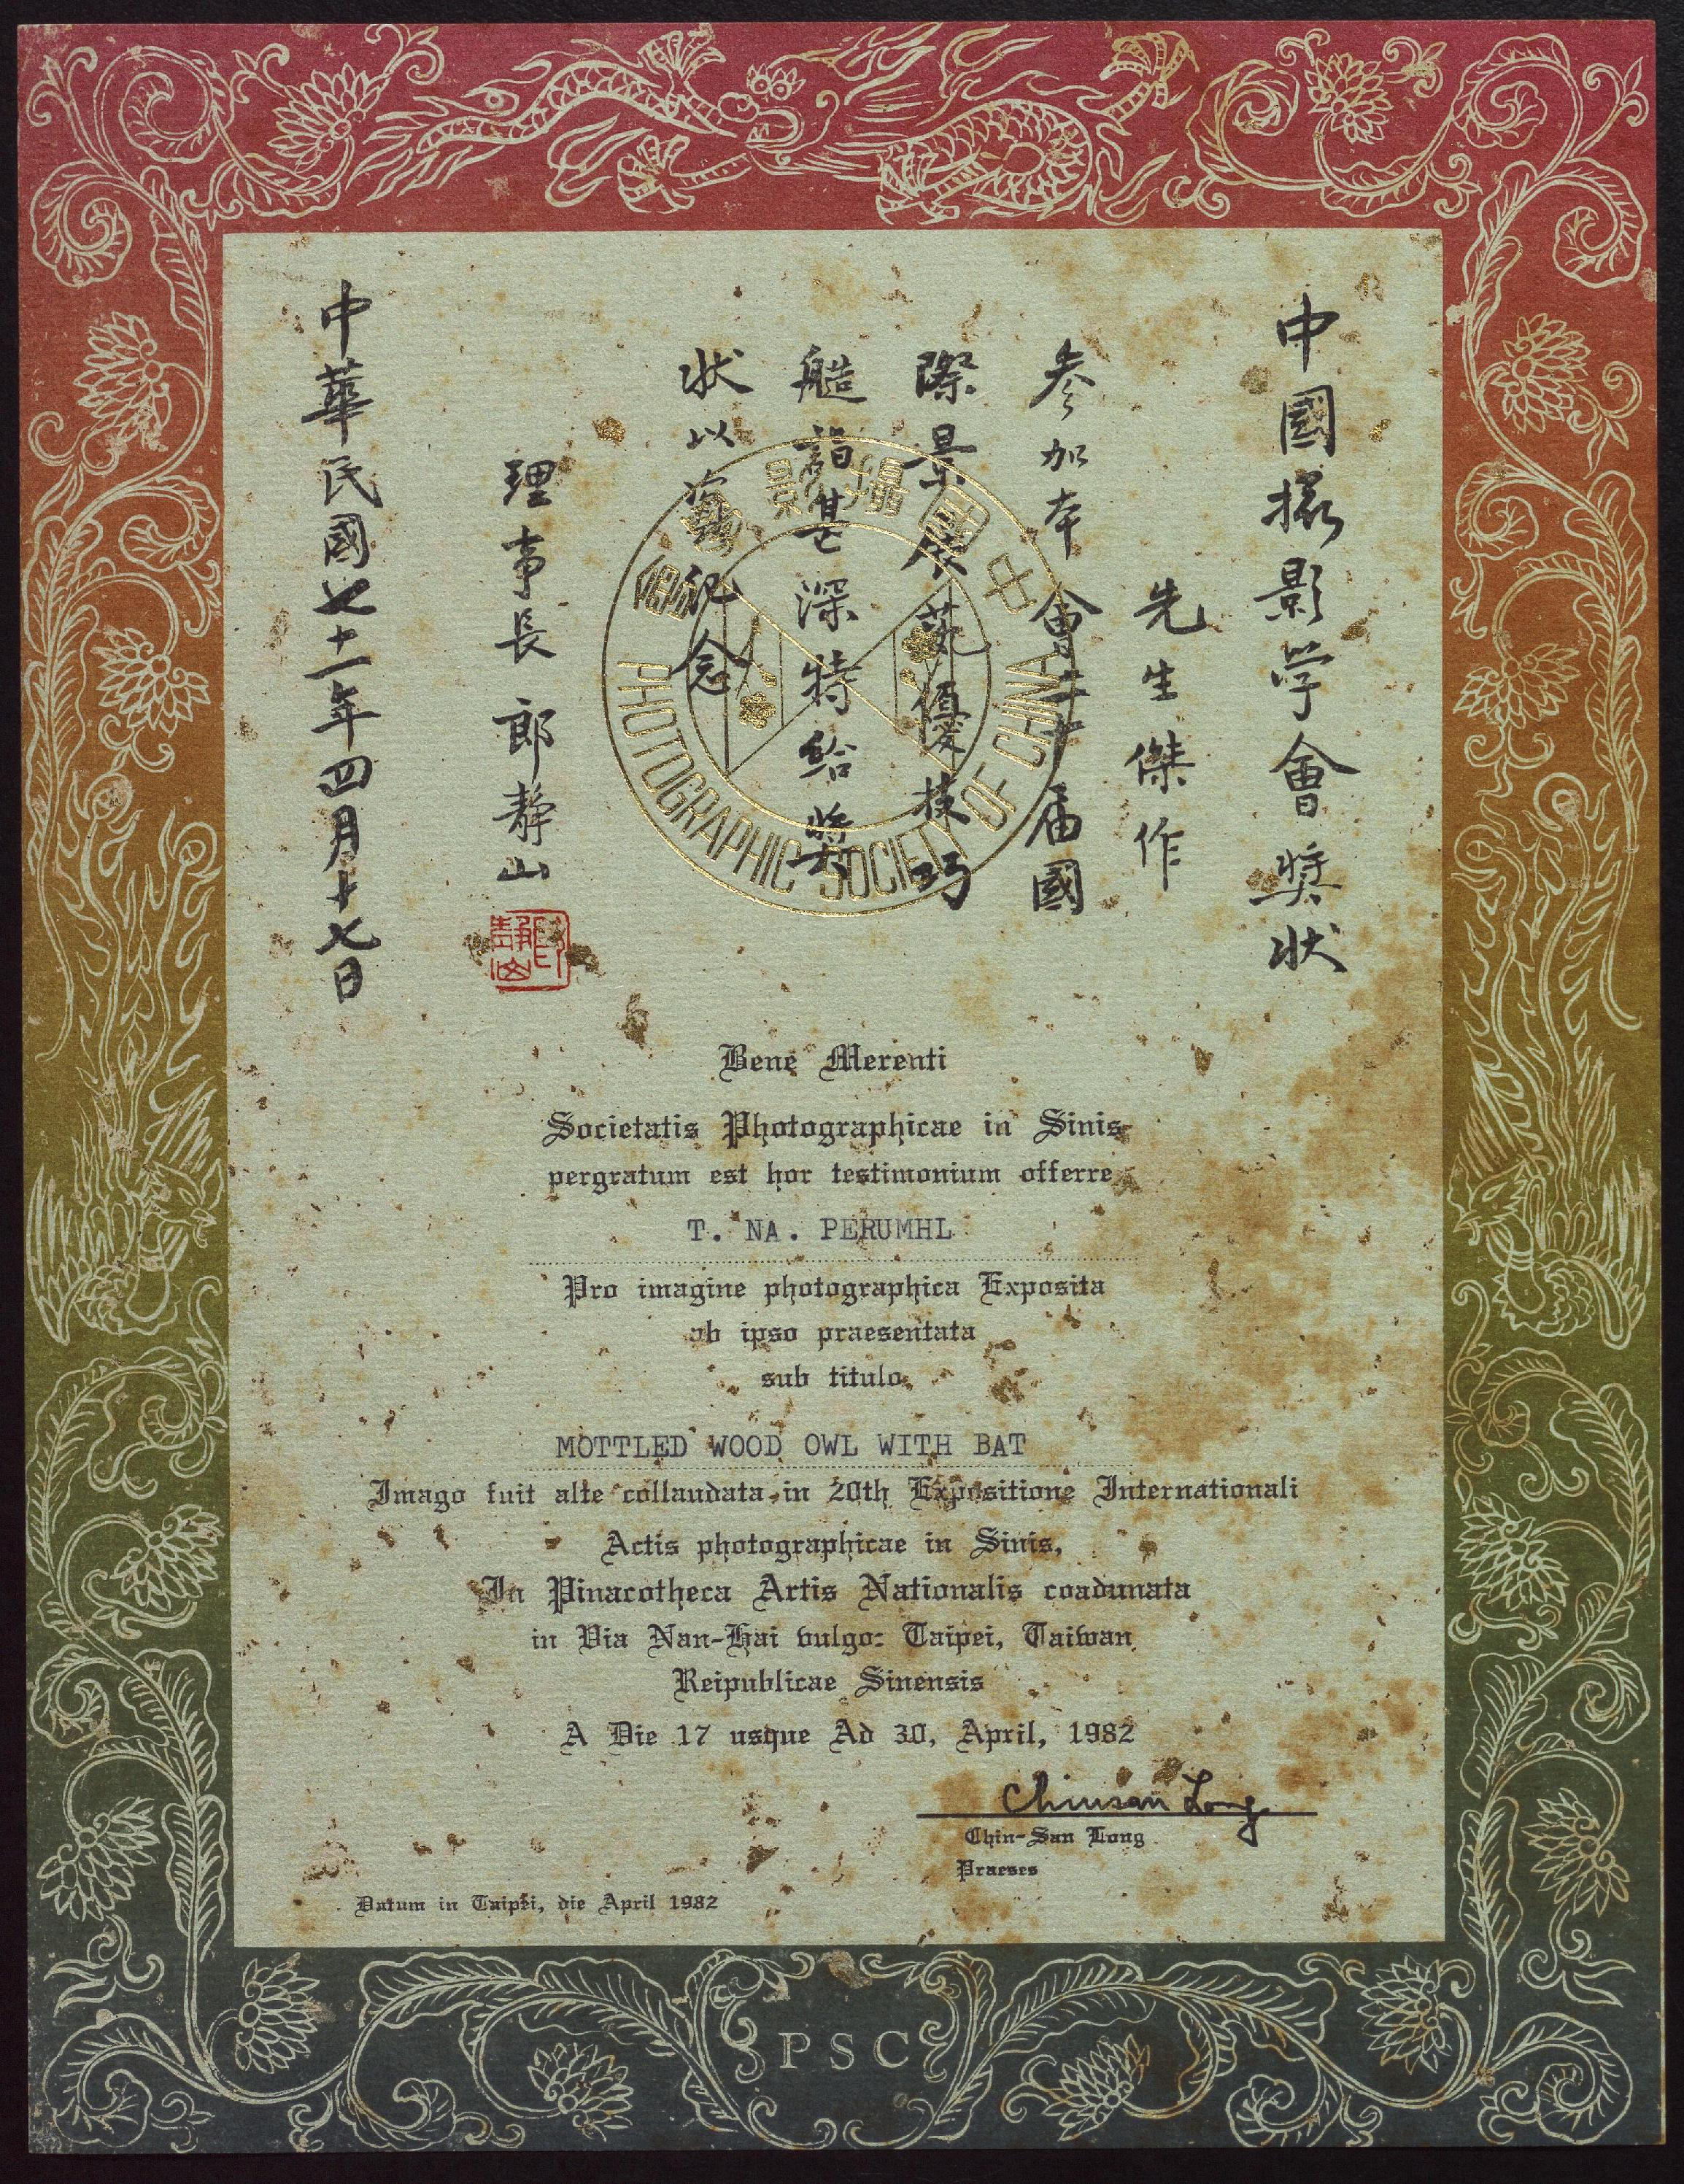 中國攝影学會獎狀
先生傑作
参加本會二十届國
際景展藝優技巧
艁詣甚深特給奬
狀以爲記念
理事長 郎靜山
中華民國七十一年四月十七日
中國攝影學會
PHOTOGRAPHIC SOCIETY OF CHINA
Bene Merenti
Societatis Photographicae in Sinis
pergratum est hor testimonium offerre
T. NA. PERUMHL
Pro imagine photographica Exposita
ab ipso praesentata
sub titulo
MOTTLED WOOD OWL WITH BAT
Imago fuit alte collaudata in 20th Expositione Internationali
Actis photographicae in Sinis,
In Pinacotheca Artis Nationalis coadunata
in Via Nan-Hai vulgo: Taipei, Taiwan
Reipublicae Sinensis
A Die 17 usque Ad 30, April, 1982
Chinsan Long
Chin-San Long
Praeses
Datum in Taipei, die April 1982
PSC